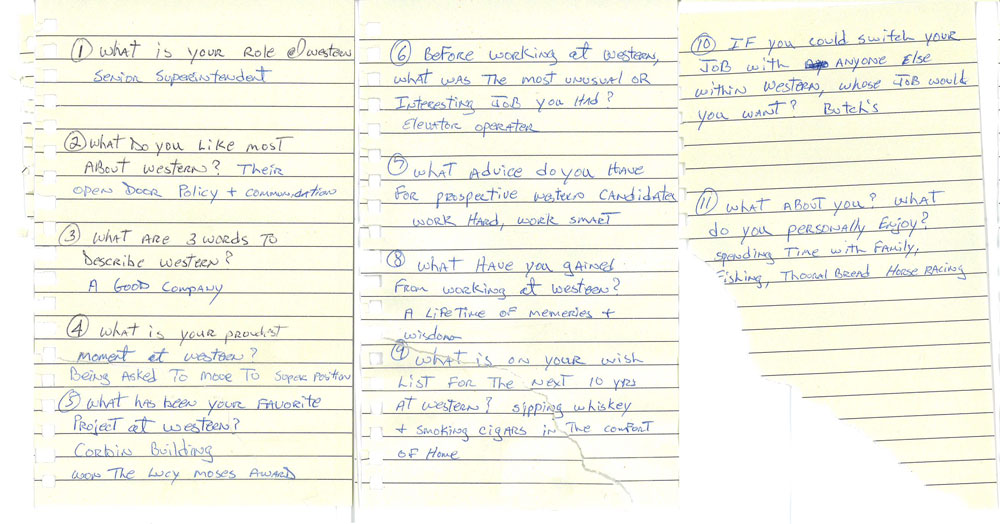 ① What is your Role @ Western
Senior Superintendent
② What Do you Like most
About Western? Their
open Door Policy + communication
③ What are 3 words to
Describe Western?
A Good Company
④ What is your proudest
moment at Western?
Being Asked To move To Super Position
⑤ What has been your Favorite
Project at Western?
Corbin Building
won The Lucy Moses Award
⑥ Before working at Western,
what was The most unusual or
Interesting Job you Had?
Elevator operator
⑦ What Advice do you Have
For prospective Western Candidates
work Hard, work smart
⑧ What Have you gained
From working at Western?
A Lifetime of memeries +
wisdom
⑨ What is on your wish
List For The next 10 yrs
At Western? sipping whiskey
+ smoking cigars in The comfort
of Home
⑩ If you could switch your
Job with Anyone Else
within Western, whose Job would
you want? Butch's
⑪ What About you? What
do you personally Enjoy?
spending Time with Family,
Fishing, Thoural Bread Horse Racing